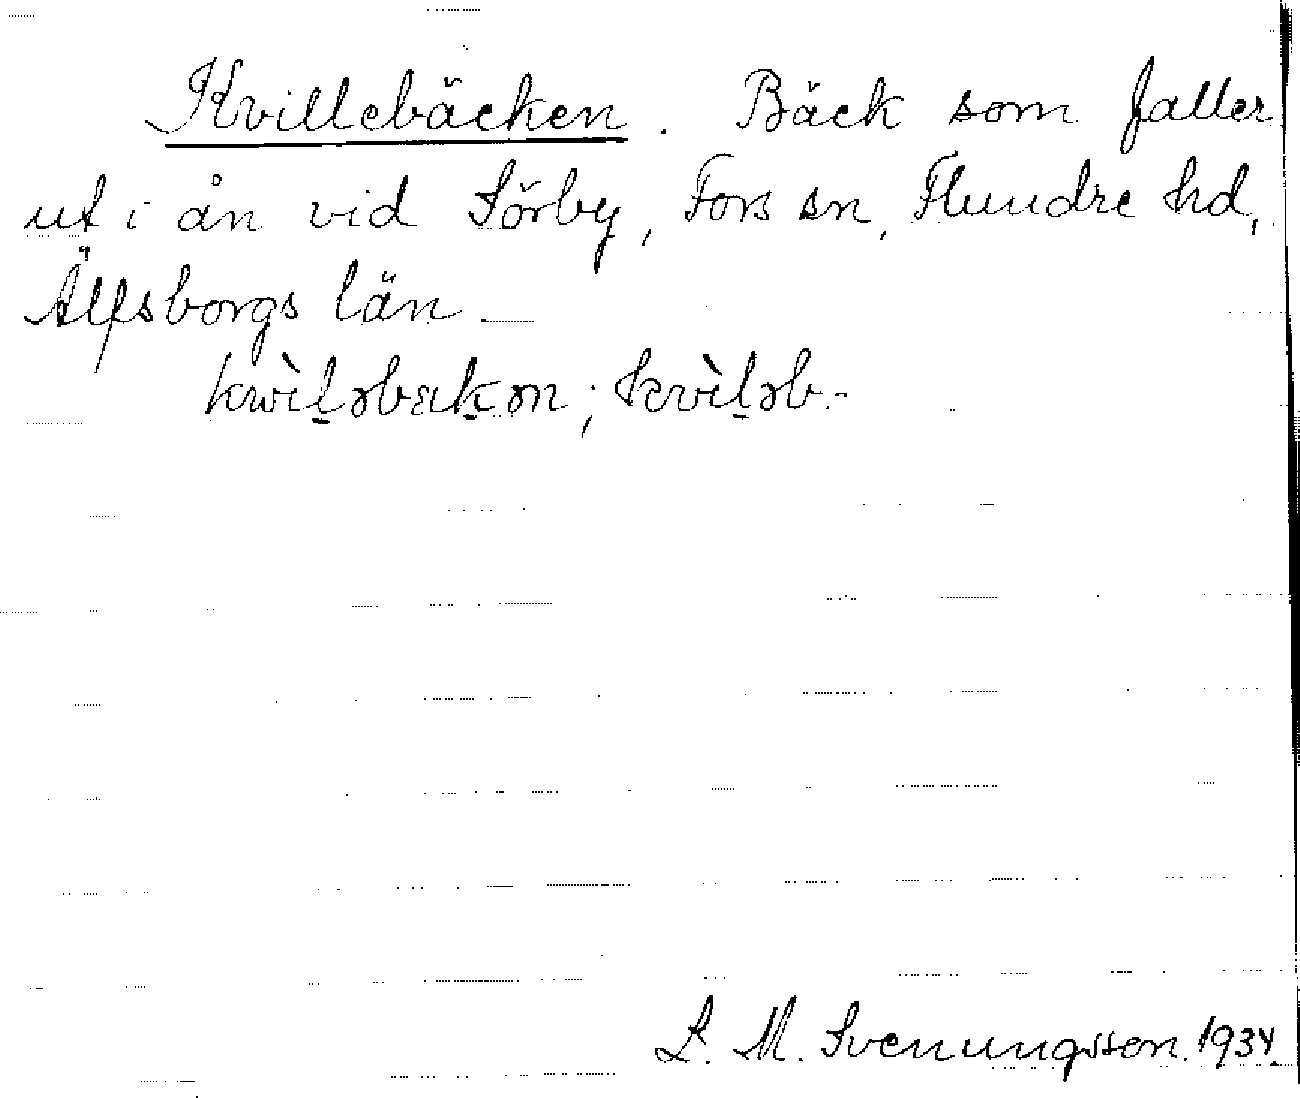 Kvillebäcken. Bäck som faller
ut i ån vid Sörby, Fors sn, Flundre hd,
Älfsborgs län
kwìl̠əbæk̠ən; kvìl̠əb.-
L. M. Svenungsson. 1934.